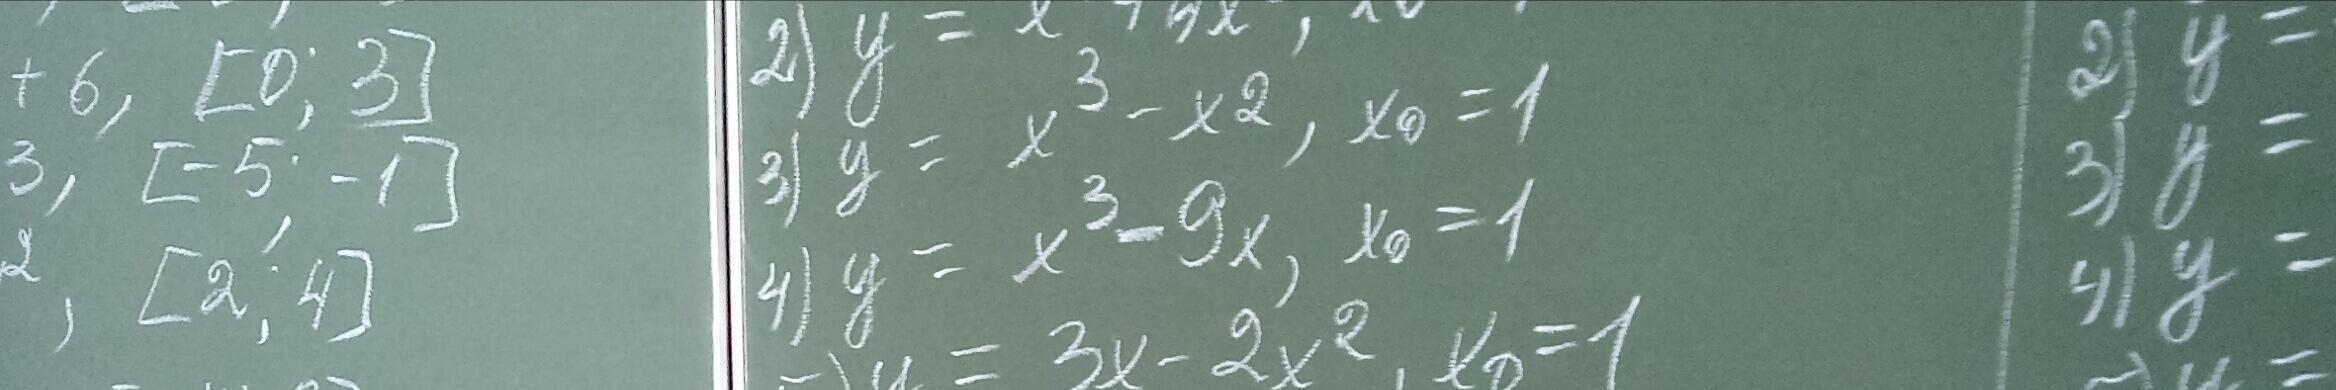 +6, [0; 3]
3, [-5; -1]
2, [2; 4]
2) y =
3) y = x³ - x², x₀ = 1
4) y = x³ - 9x, x₀ = 1
y = 3x - 2x², x₀ = 1
2) y =
3) y =
4) y =
y =